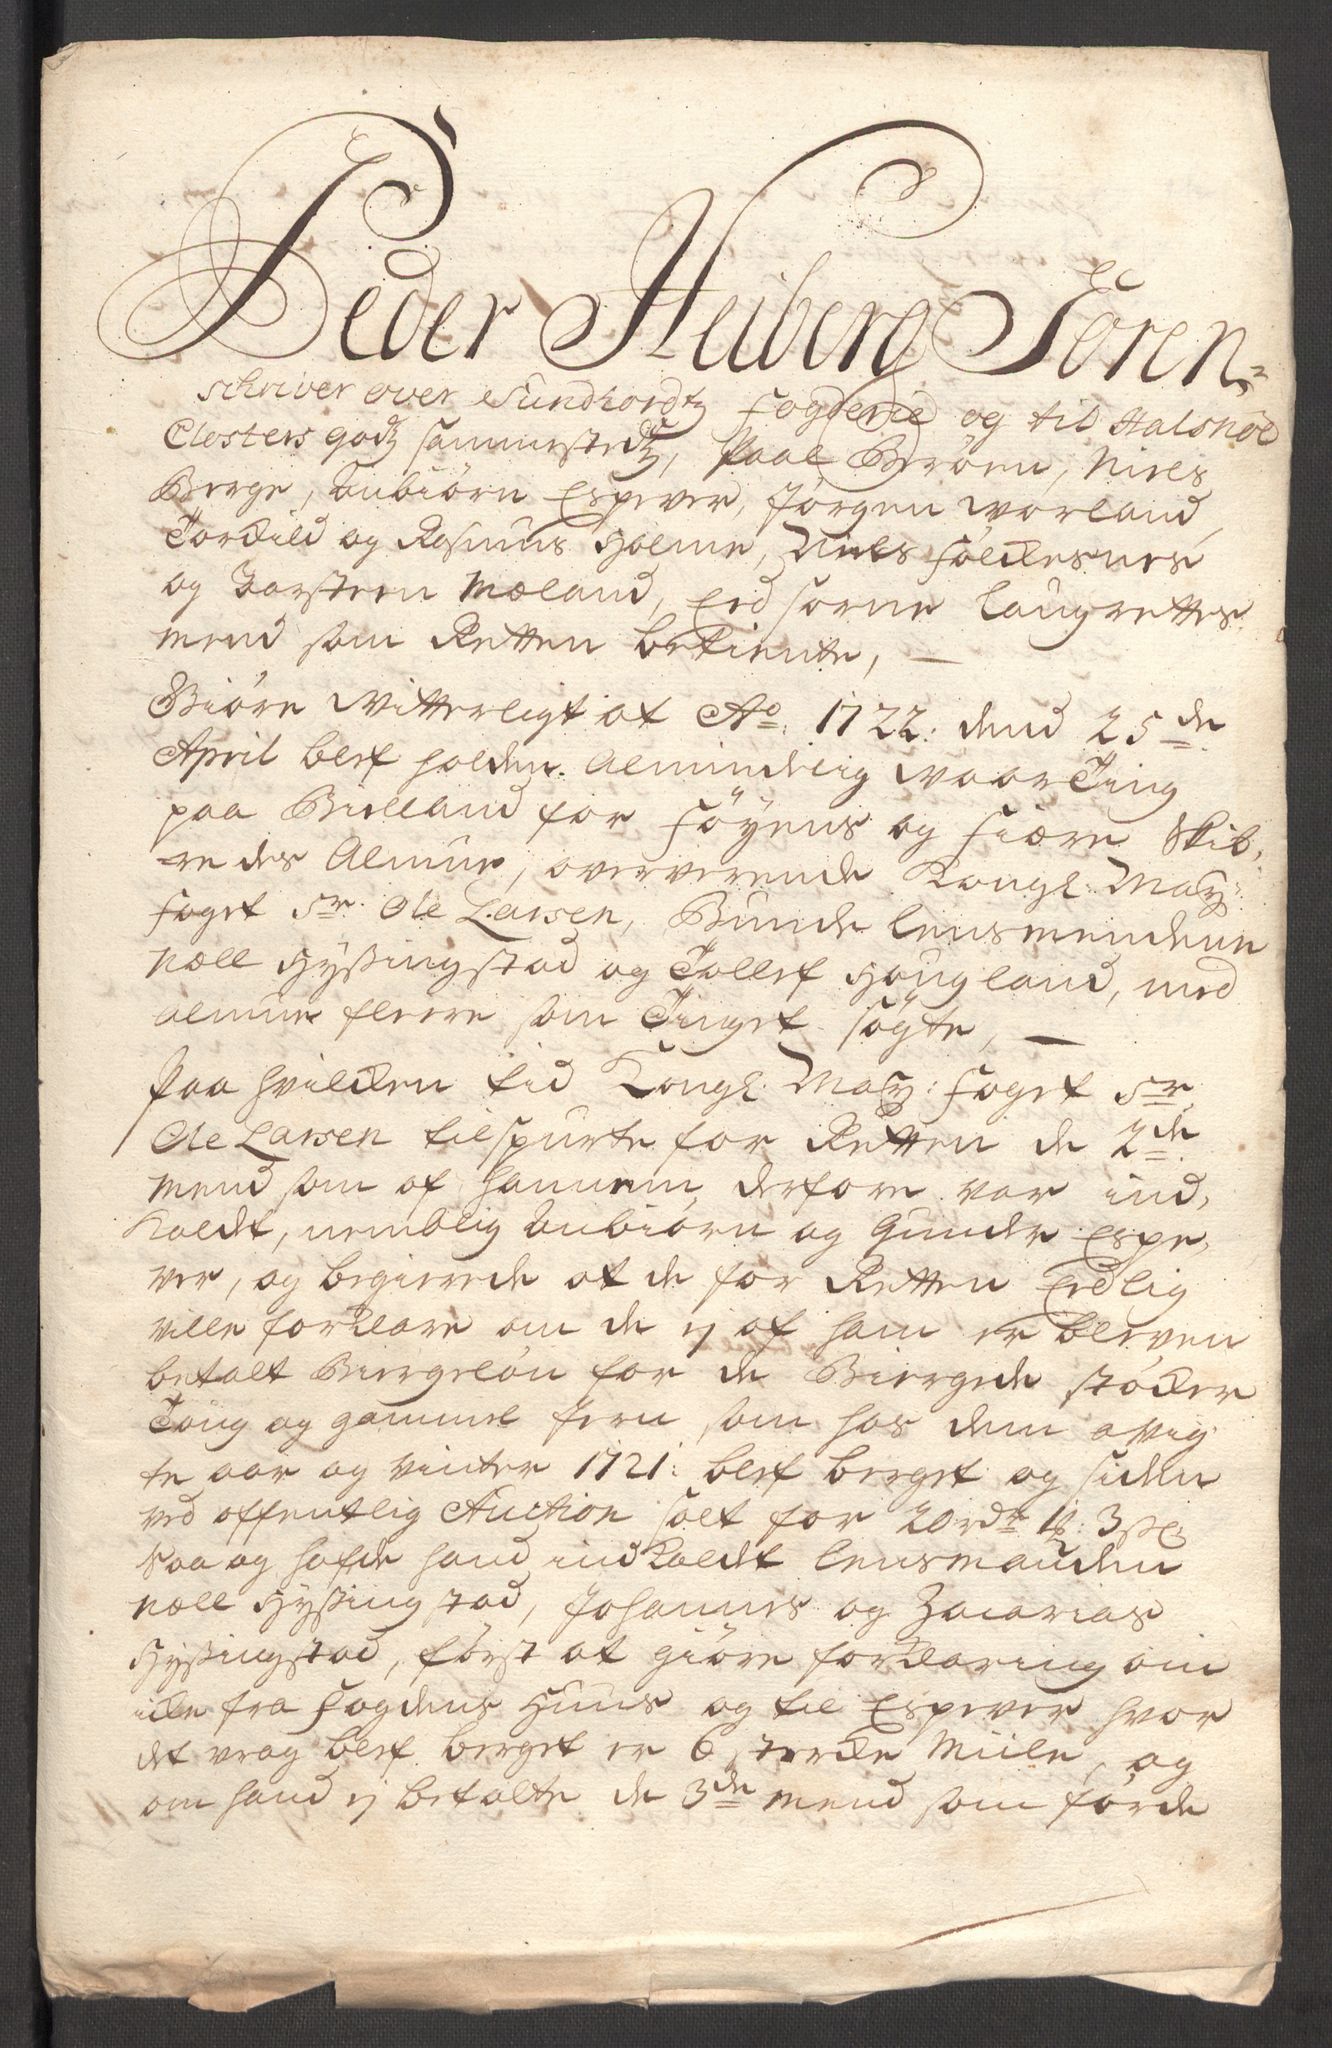 Peder Heiberg Soren-
schriver over Sundhordtz Fogderie og til Halsnöe
Closters godtz sammestedtz, Paal Brören, Niels
Berge, Anbiörn Espever, Jörgen Worland,
Torkild og Rasmus Holme, Niels Föllesnes
og Torsteen Mæland, Eed sorne Laugrettes
mend som Retten betiente,
Giöre Witterligt at Ao: 1722: dend 25de
April blef holden Almindelig Waar Ting
paa Bielland for Föyens og Fiære Skib-
redes Almue, oververende Kongl: May:
Foget Sr. Ole Larsen, Bunde Lensmendene
Næll Hyßingstad og Tollef Hougland, med
almue fleere som Tinget Sögte,
Paa hvilcken tid Kongl: May: Foget Sr.
Ole Larsen tilspurte for Retten de 2de
Mend som af hannem derfore var ind-
Kaldt, nemblig Anbiörn og Gunder Espe-
ver, og begierede at de for Retten Eedlig
ville forklare om de ej af ham er bleven
betalt Biergelön for de Biergede stöcker
Toug og gammel Jern som hos dem avig-
te aar og vinter 1721: blef berget og siden
ved offentlig Auction solt for 20 rdr 1 ℔: 3 ß
Saa og hafde hand ind Kaldt Lensmanden
Næll Hyßingstad, Johannes og Zacarias
Hyßingstad, först at giöre forklaring om
icke fra Fogdens Huus og til Espever hvor
det vrag blef berget er 6 stercke Miile, og
om hand ej betalte de 3de mend som förde